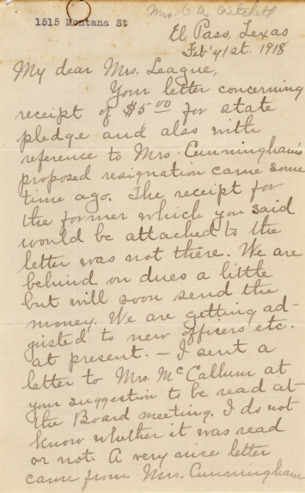 Mrs. C. A. Critchett
1515 Montana St
El Paso, Texas
Feb'y 21st. 1918
My dear Mrs. League,
Your letter concerning
receipt of $5.00 for state
pledge and also with
reference to Mrs. Cunningham's
proposed resignation came some
time ago. The receipt for
the former which you said
would be attached to the
letter was not there. We are
behind on dues a little
but will soon send the
money. We are getting ad-
justed to new officers etc.
at present. — I sent a
letter to Mrs. McCallum at
your suggestion to be read at
the Board meeting. I do not
know whether it was read
or not. A very nice letter
came from Mrs. Cunningham